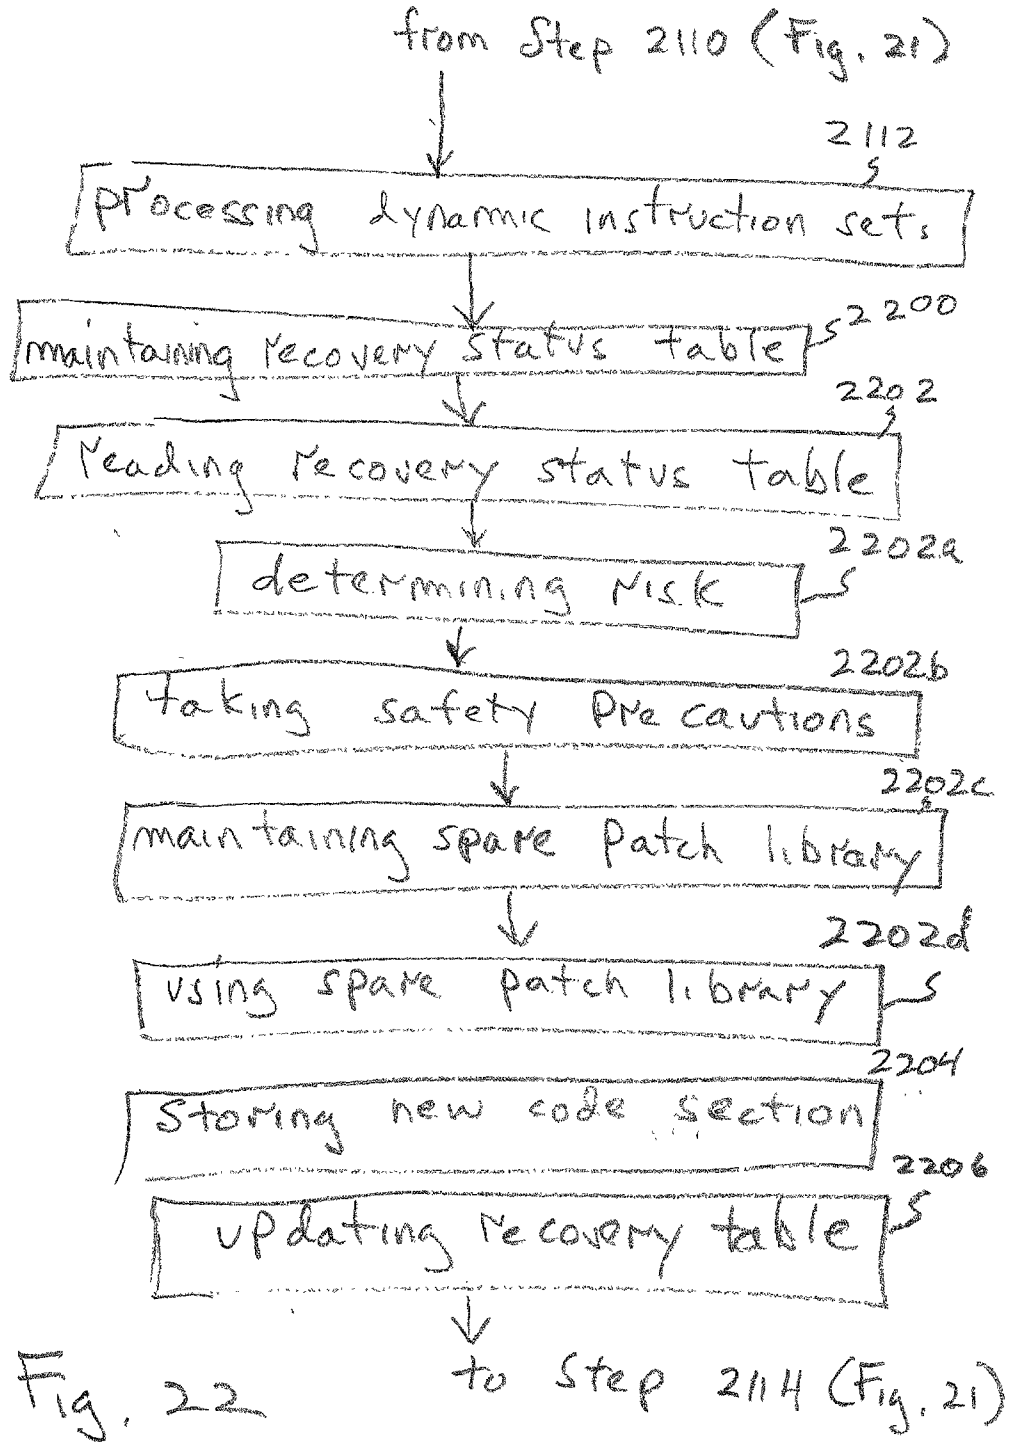 from Step 2110 (Fig. 21)
2112
processing dynamic instruction sets
2200
maintaining recovery status table
2202
reading recovery status table
2202a
determining risk
2202b
taking safety precautions
2202c
maintaining spare patch library
2202d
using spare patch library
2204
storing new code section
2206
updating recovery table
to Step 2114 (Fig. 21)
Fig. 22